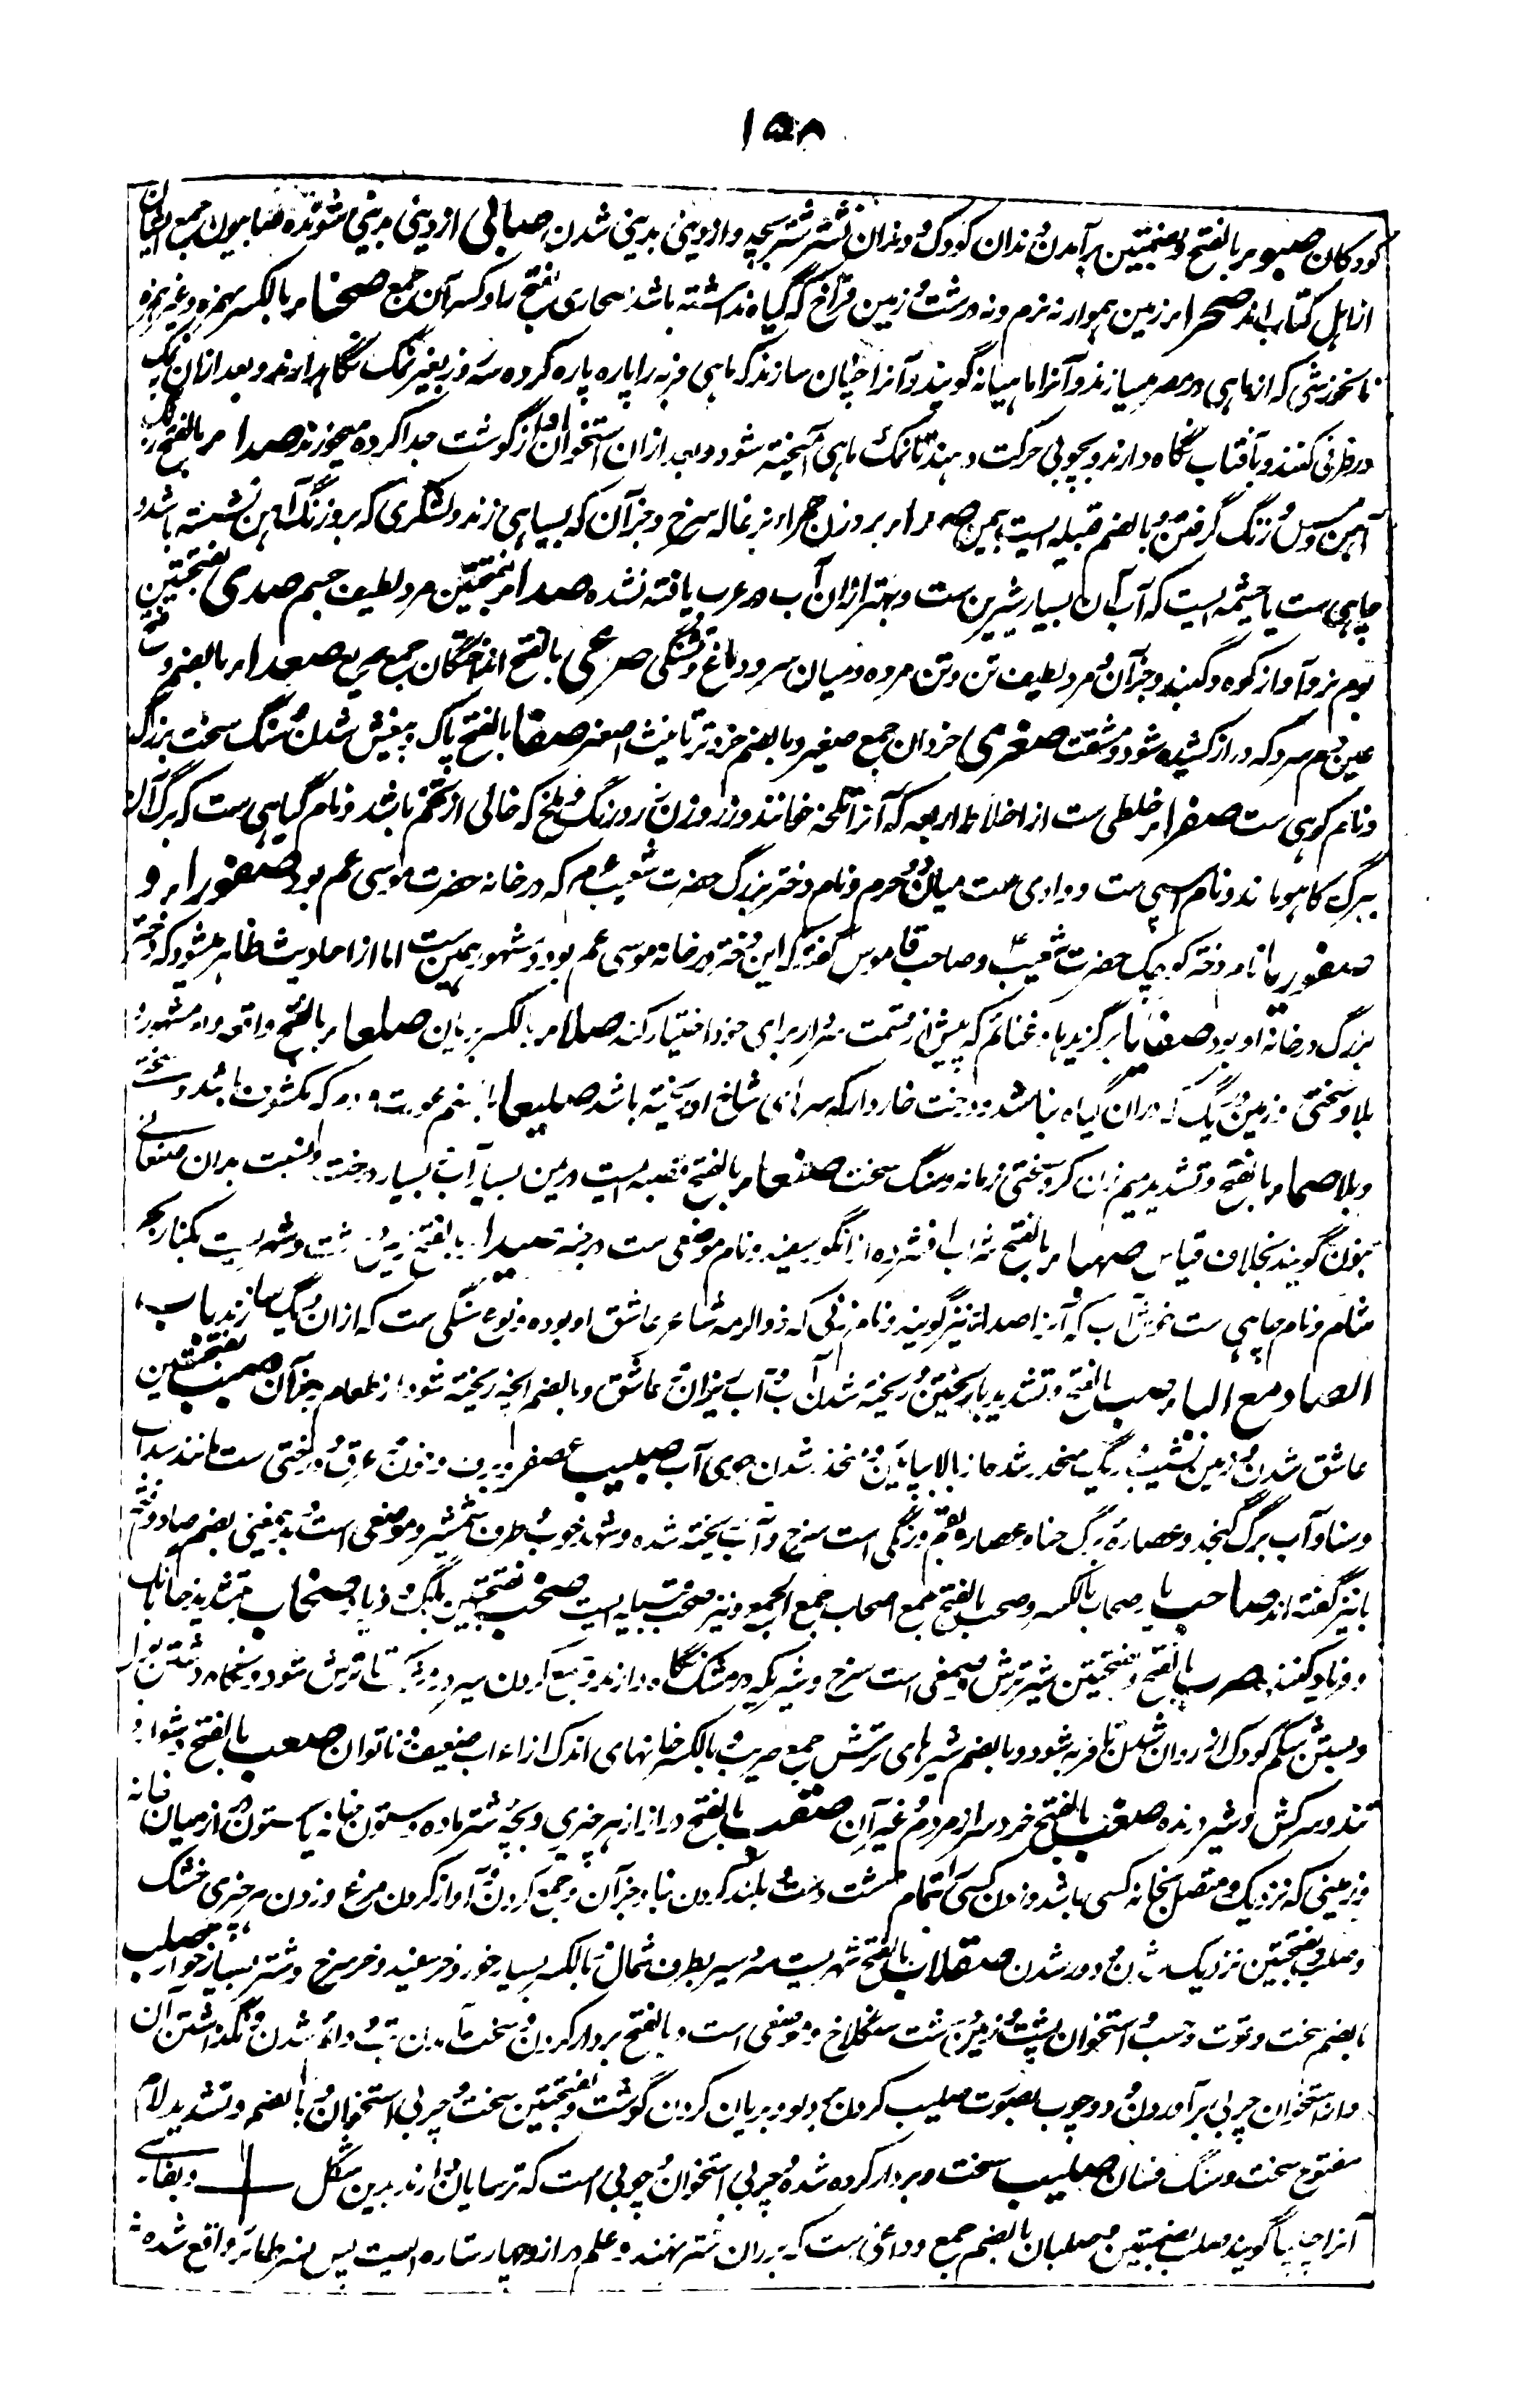 ۱۵۸
کودکان صبوء بالفتح وبضمتین برآمدن دندان کودک و دندان نشتر شتر بچه و از دینی بدینی شدن صبائی از دینی بدینی شونده صابیون جمع ایشان
از اهل کتاب اند صحراء زمین هموار نه نرم و نه درشت و زمین فراخ که گیاه نداشته باشد صحاری بفتح راو کسر آن جمع صحناء بالکسر بهمزه و غیر همزه
نانخورشی که از ماهی در مصر میسازند و آنرا ماهیانه گویند و آنرا چنان سازند که ماهی فربه را پاره پاره کرده سه روز بغیر نمک نگاهدارند و بعد ازان نمک
در ظرفی کنند و بآفتاب نگاه دارند و بچوبی حرکت دهند تا نمک بماهی آمیخته شود و بعد ازان استخوان او از گوشت جدا کرده میخورند صداء بالفتح
آهن و مس و زنگ گرفتن و بالضم قبیله ایست بیمن صداء بر وزن حمراء بزغاله سرخ و جز آن که بسیاهی زند و لشکری که برو زنگ آهن نشسته باشد و
چاهی ست یا چشمه ایست که آب آن بسیار شیرین ست و بهتر ازان آب در عرب یافته نشده صداء بفتحتین مرد لطیف جسم صدی بفتحتین
بوم نر و آواز کوه و گنبد و جز آن و مرد لطیف تن و تن مرده و میان سر و دماغ و تشنگی صرعی بالفتح انداختگان جمع صریع صعداء بالضم و فتح
عین دم سرد که دراز کشیده شود و مشقت صغری خردان جمع صغیر و بالضم خردتر تانیث اصغر صفا بالفتح پاک و بیغش شدن و سنگ سخت بزرگ
و نام کوهی ست صفراء خلطی ست از اخلاط اربعه که آنرا تلخه خوانند و زر و زن زرد رنگ و ملخ که خالی از تخم باشد و نام گیاهی ست که برگ آن
ببرگ کاهو ماند و نام اسپی ست و وادی ست میان و محرم و نام دختر بزرگ حضرت شعیب م که در خانه حضرت موسی عم بود صفوراء و
صفوریا نام دختر کوچک حضرت شعیب و صاحب قاموس گفته که این دختر در خانه موسی عم بود و مشهور همین ست اما از احادیث ظاهر میشود که دختر
بزرگ در خانه او بود صفایا برگزیدها و غنائم که پیش از قسمت سردار برای خود اختیار کند صلاء بالکسر بریان صلعاء بالفتح واقعه و امر مشهور و
بلا و سختی و زمین و ریگ که دران گیاه نباشد و درخت خاردار که سرهای شاخ او ریخته باشد صلیعا بالضم عورت مرد که مکشوف باشد و سختی
و بلا صماء بالفتح و تشدید میم زن کر و سختی زمانه و سنگ سخت صنعاء بالفتح قصبه ایست در یمن بسیار آب و بسیار درخت و نسبت بدان صنعانی
بنون گویند بخلاف قیاس صهباء بالفتح شراب افشرده از انگور سفید و نام موضعی ست در خیبر صیداء بالفتح زمین درشت و شهریست بکنار بحر
شام و نام چاهی ست خوش آب که آنرا صداء نیز گویند و نام زنی که ذوالرمه شاعر عاشق او بوده و نوع سنگی ست که ازان دیگ سازند باب
الصاد مع الباء صب بالفتح و تشدید با ریختن و ریخته شدن آب و آب ریزان و عاشق و بالضم آنچه ریخته شود از طعام و جز آن صبب بفتحتین
عاشق شدن و زمین نشیب و ریگ منحدر شده از بالا بپائین و منحدر شدن جوی آب صبیب عصفر و برف و خون و عرق و درختی ست مانند سداب
و سنا و آب برگ کنجد و عصاره برگ حنا و عصاره بقم و رنگی است سرخ و آب ریخته شده و شهد خوب و طرف شمشیر و موضعی است و بدمعنی بضم صاد و فتح
با نیز گفته اند صاحب یار صحاب بالکسر و صحب بالفتح جمع اصحاب جمع الجمع و نیز صحب قبیله ایست صخب بفتحتین بانگ و فریاد صخاب بتشدید خا بانگ
و فریاد کننده صرب بالفتح و بفتحتین شیر ترش و صمغی است سرخ و شیریکه در مشک نگاه دارند و جمع کردن شیر تا ترش شود و نگاه داشتن بول
و بستن شکم کودک از روان شدن تا فربه شود و بالضم شیرهای ترش جمع صریب و بالکسر خانهای اندک از اعراب ضعیف و ناتوان صعب بالفتح دشوار و
تند و سرکش و شیر درنده صعنب بالفتح خردسر از مردم و غیر آن صقب بالفتح دراز از هر چیزی و بچه شتر ماده و ستون خانه یا ستون دراز میان خانه
و زمینی که نزدیک و متصل بخانه کسی باشد و زدن کسی را تمام مشت دست و بلند کردن بنا و جز آن و جمع کردن و آواز کردن مرغ و زدن هر چیزی خشک
و صلب و بفتحتین نزدیک شدن و دور شدن صقلاب بالفتح شهریست سردسیر بطرف شمال و بالکسر بسیار خور و خر سفید و خر سرخ و شتر بسیار خوار صلب
بالضم سخت و قوت و حسب و استخوان پشت و زمین درشت سنگلاخ و موضعی است و بالفتح بردار کردن و سخت آمدن تب و دائم شدن و نگذاشتن آن
و از استخوان چربی برآوردن و دو چوب بصورت صلیب کردن بر دلو و بریان کردن گوشت و بفتحتین سخت و چربی استخوان و بالضم و تشدید لام
مفتوح سخت و سنگ فسان صلیب سخت و بردار کرده شده و چربی استخوان و چوبی است که ترسایان دارند بدین شکل و بفارسی
آنرا چلیپا گویند صلب بضمتین و صلبان بالضم جمع و داغی ست که بر ران شتر نهند و علم دراز و چهار ستاره ایست پس نسر طائر واقع شده